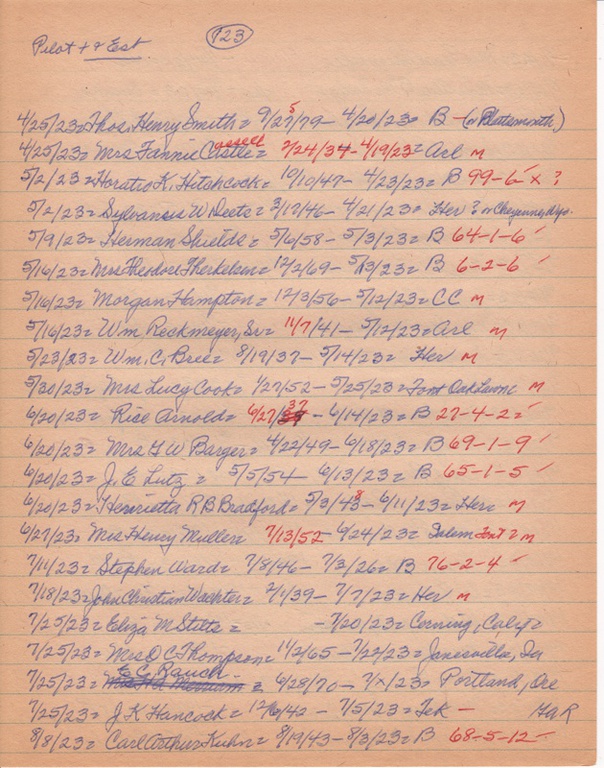 Pilot + & Est. 123
4/25/23= Thos. Henry Smith= 9/27/79 - 4/20/23= B - (or Plattsmouth)
4/25/23= Mrs Fannie = 2/24/34 - 4/19/23= Arl m
5/2/23= Horatio K. Hitchcock= 10/10/47 - 4/23/23= B 99-6 x ?
5/2/23= Sylvanus W Deets= 3/17/46 - 4/21/23= Her ? or Cheyenne, Wyo.
5/9/23= Herman Shields= 5/6/58 - 5/3/23= B 64-1-6
5/16/23= Mrs Theodore Therkelsen= 12/2/69 - 5/13/23= B 6-2-6
5/16/23= Morgan Hampton= 12/3/56 - 5/12/23= CC m
5/16/23= Wm. Reckmeyer, Sr= 11/7/41 - 5/12/23= Arl m
5/23/23= Wm. C. Bree= 8/19/37 - 5/14/23= Her m
5/30/23= Mrs Lucy Cook= 1/27/52 - 5/25/23= Font Oak Lawn m
6/20/23= Rice Arnold= 6/27/37 - 6/14/23= B 27-4-2=
6/20/23= Mrs G W Barger= 4/22/49 - 6/18/23= B 69-1-9
6/20/23= J. E Lutz = 5/5/54 - 6/13/23= B 65-1-5
6/20/23= Henrietta R B Bradford= 5/3/48 - 6/11/23= Her m
6/27/23= Mrs Henry Muller= 7/13/52 - 6/24/23= Salem Font ? m
7/11/23= Stephen Ward= 7/8/46 - 7/3/26= B 76-2-4
7/18/23= John Christian Wachter= 2/1/39 - 7/7/23= Her m
7/25/23= Eliza M Stilts = - 7/20/23= Corning, Calif=
7/25/23= Mrs O C Thompson= 11/2/65 - 7/22/23= Janesville, Ia
7/25/23= E C Rauch = 6/28/70 - 7/x/23= Portland, Ore
7/25/23= J. K Hancock= 12/6/42 - 7/5/23= Tek - GaR
8/8/23= Carl Arthur Kuhn= 8/19/43 - 8/3/23= B 68-5-12